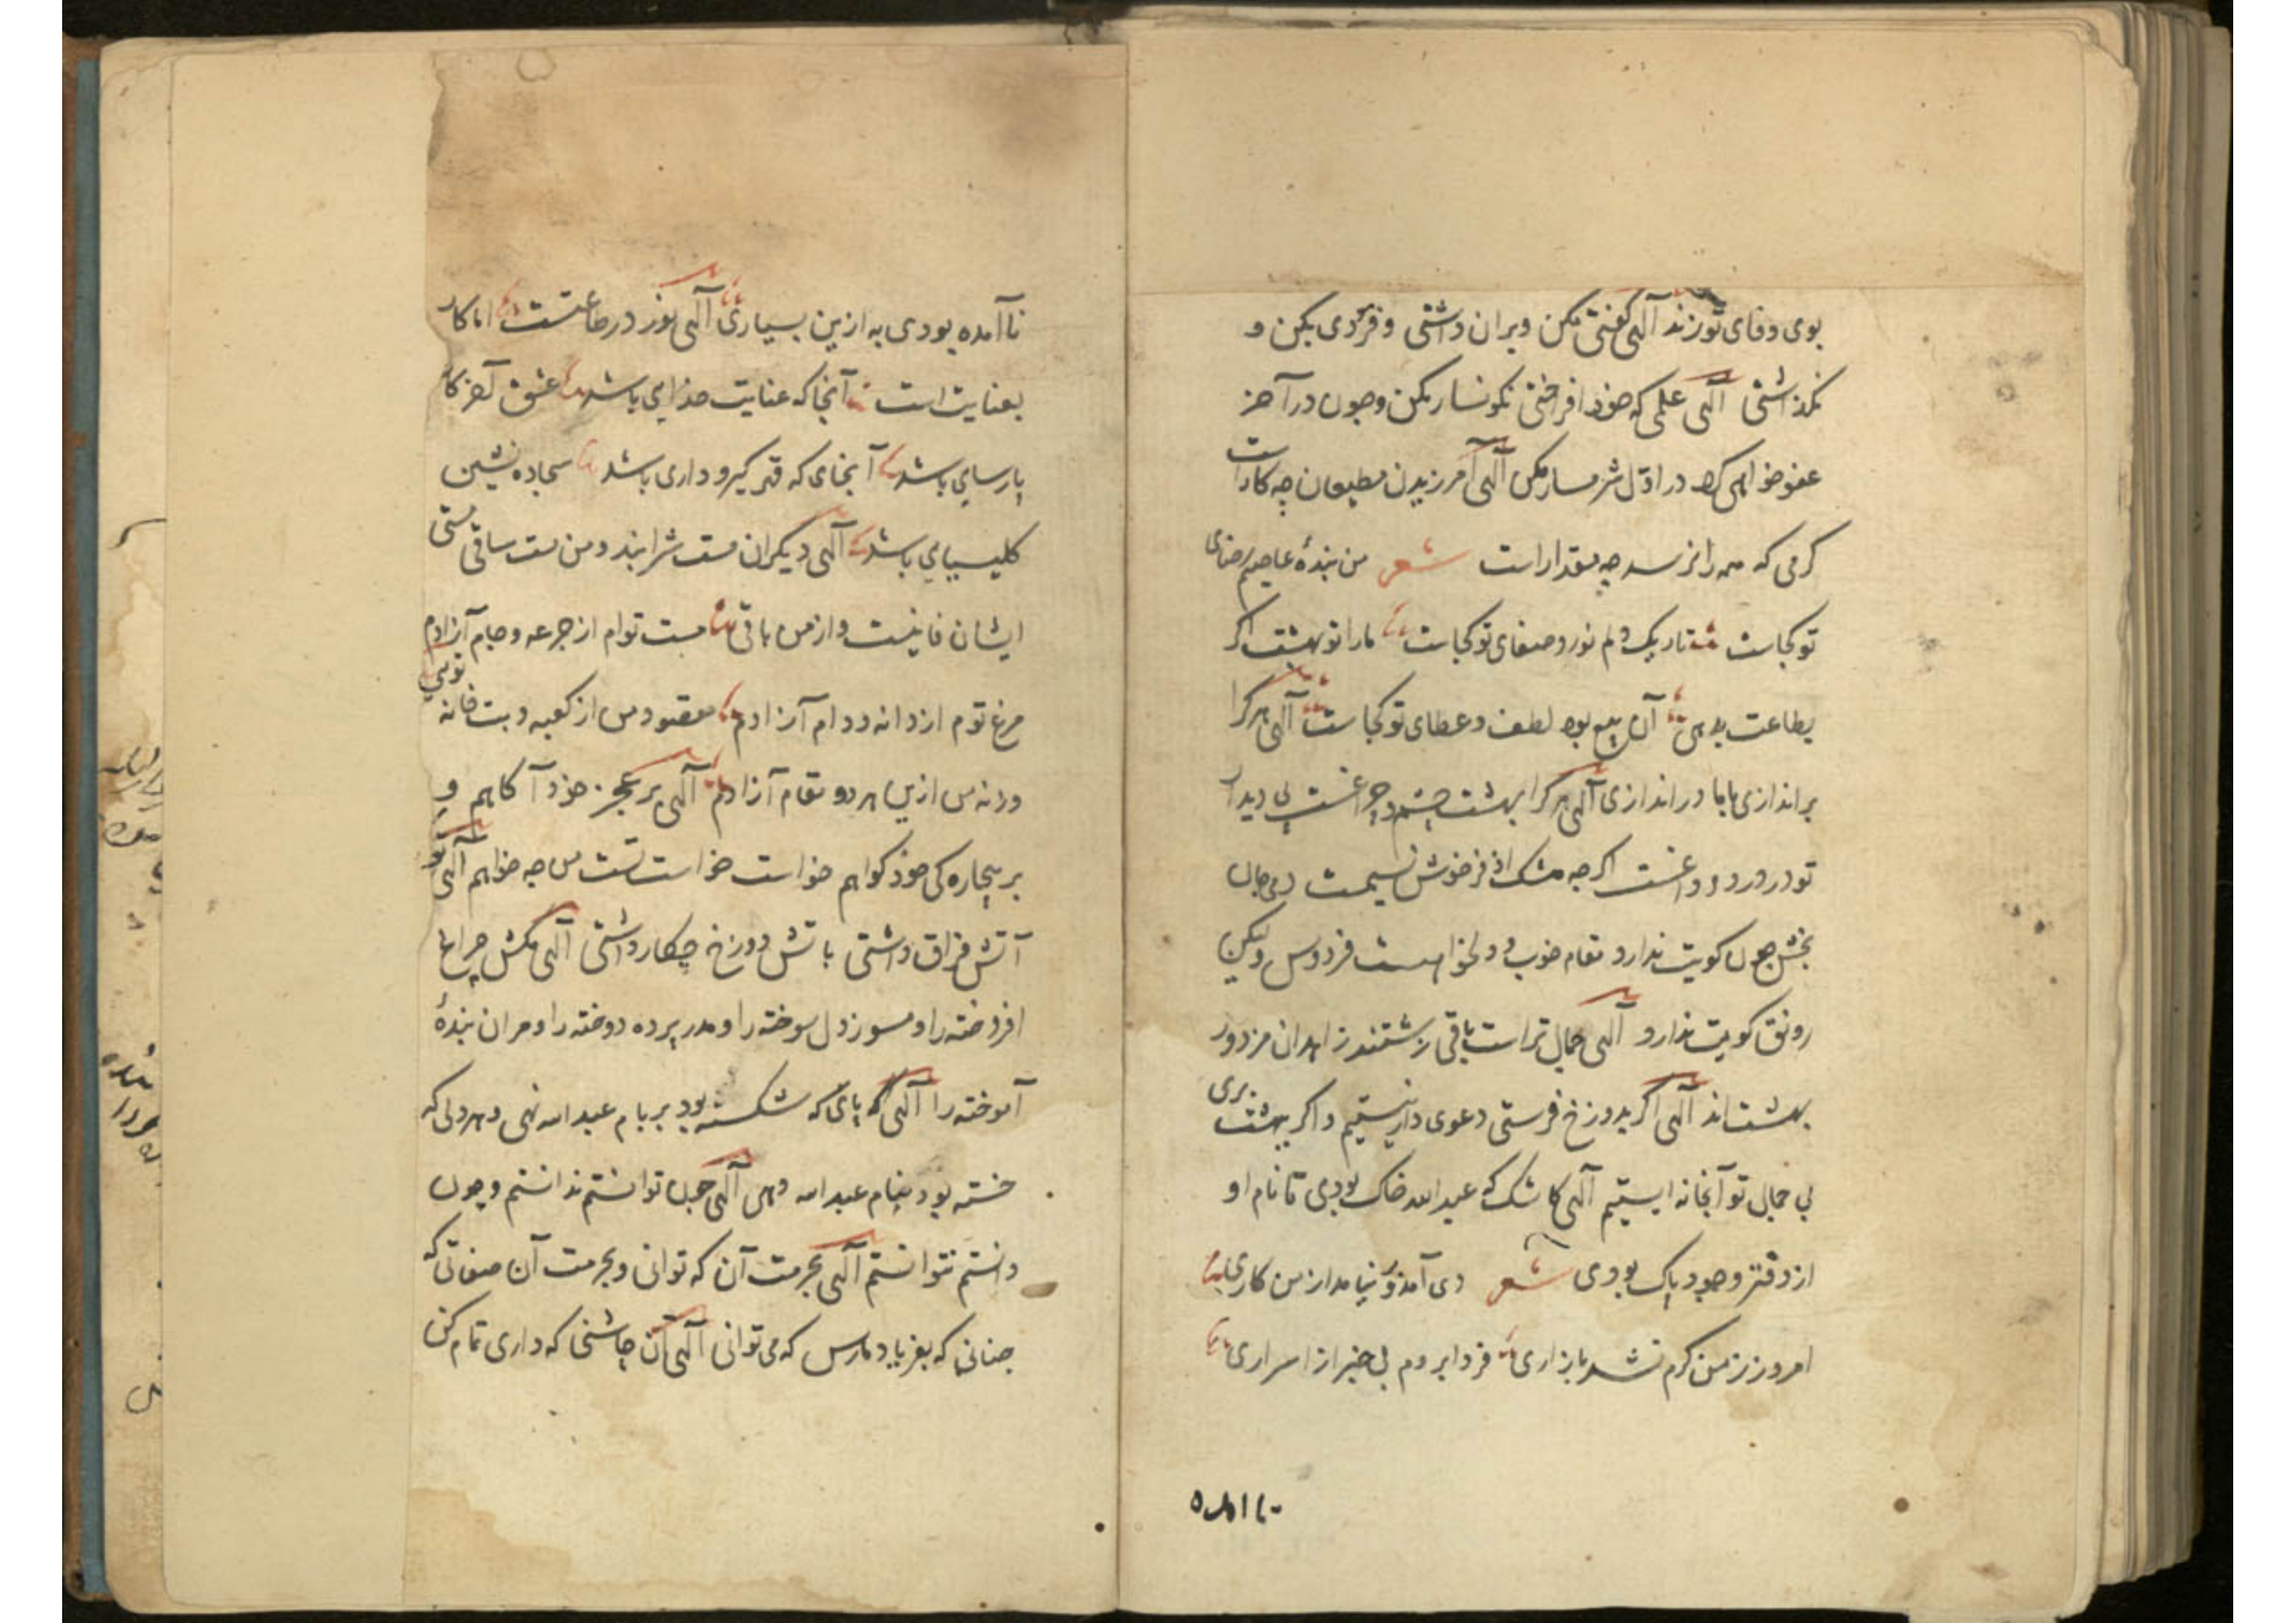 بوی وفای تو زند الهی گفتی مکن و بران داشتی و فرمودی بکن و
نگذاشتی الهی علمی که خود افراختی نگونسار مکن و چون در آخر
عفو خواهی کرد در اول شرمسار مکن الهی آمرزیدن مطیعان چه کار است
کرمی که همه را نرسد چه مقدار است شعر من بندهٔ عاصیم رضای
تو کجاست تاریک دلم نور و صفای تو کجاست ما را تو بهشت اگر
بطاعت بدهی آن بیع بود لطف و عطای تو کجاست الهی هر کرا
براندازی با ما در اندازی الهی هر کرا بهشت چشم و چراغست بی دیدار
تو در درد و داغست اگرچه مشک اذفر خوش نسیمست دمی جان
بخش چون کویت ندارد مقام خوب و دلخواهست فردوس ولیکن
رونق کویت ندارد الهی جمال تراست باقی زشتند زاهدان مزدور
بهشت اند الهی اگر بدوزخ فرستی دعوی دار نیستیم و اگر بهشت بری
بی جمال تو آنجا نه ایستیم الهی کاشک که عبد الله خاک بودی تا نام او
از دفتر وجود پاک بودی شعر دی آمدم و نیامد از من کاری
امروز ز من گرم نشد بازاری فردا بروم بی خبر از اسراری
نا امده
نا آمده بودی به ازین بسیاری الهی نور در طاعتست اما کار
بعنایت است آنجا که عنایت خدایی باشد عشق آخر کار
پارسایی باشد آنجای که قهر کیروداری باشد سجاده نشین
کلیسیایی باشد الهی دیگران مست شرابند و من مست ساقی مستی
ایشان فانیست و از من باقی مست توام از جرعه و جام آزادم
مرغ توم از دانه و دام آزادم مقصود من از کعبه و بت خانه تویی
ورنه من ازین هر دو مقام آزادم الهی بر عجز خود آگاهم و
بر بیچارگی خود گواهم خواست خواست تست من چه خواهم الهی تو
آتش فراق داشتی با تش دوزخ چکار داشتی الهی مکش چراغ
افروخته را و مسوز دل سوخته را و مدر پرده دوخته را و مران بندهٔ
آموخته را الهی که پای که شکسته بود بر بام عبد الله نهی و هر دلی که
خسته بود بنام عبد الله دهی الهی چون توانستم ندانستم و چون
دانستم نتوانستم الهی بحرمت آن که توانی و بحرمت آن صفاتی که
چنانی که بفریاد ما رس که می توانی الهی آن چاشنی که داری تمام کن